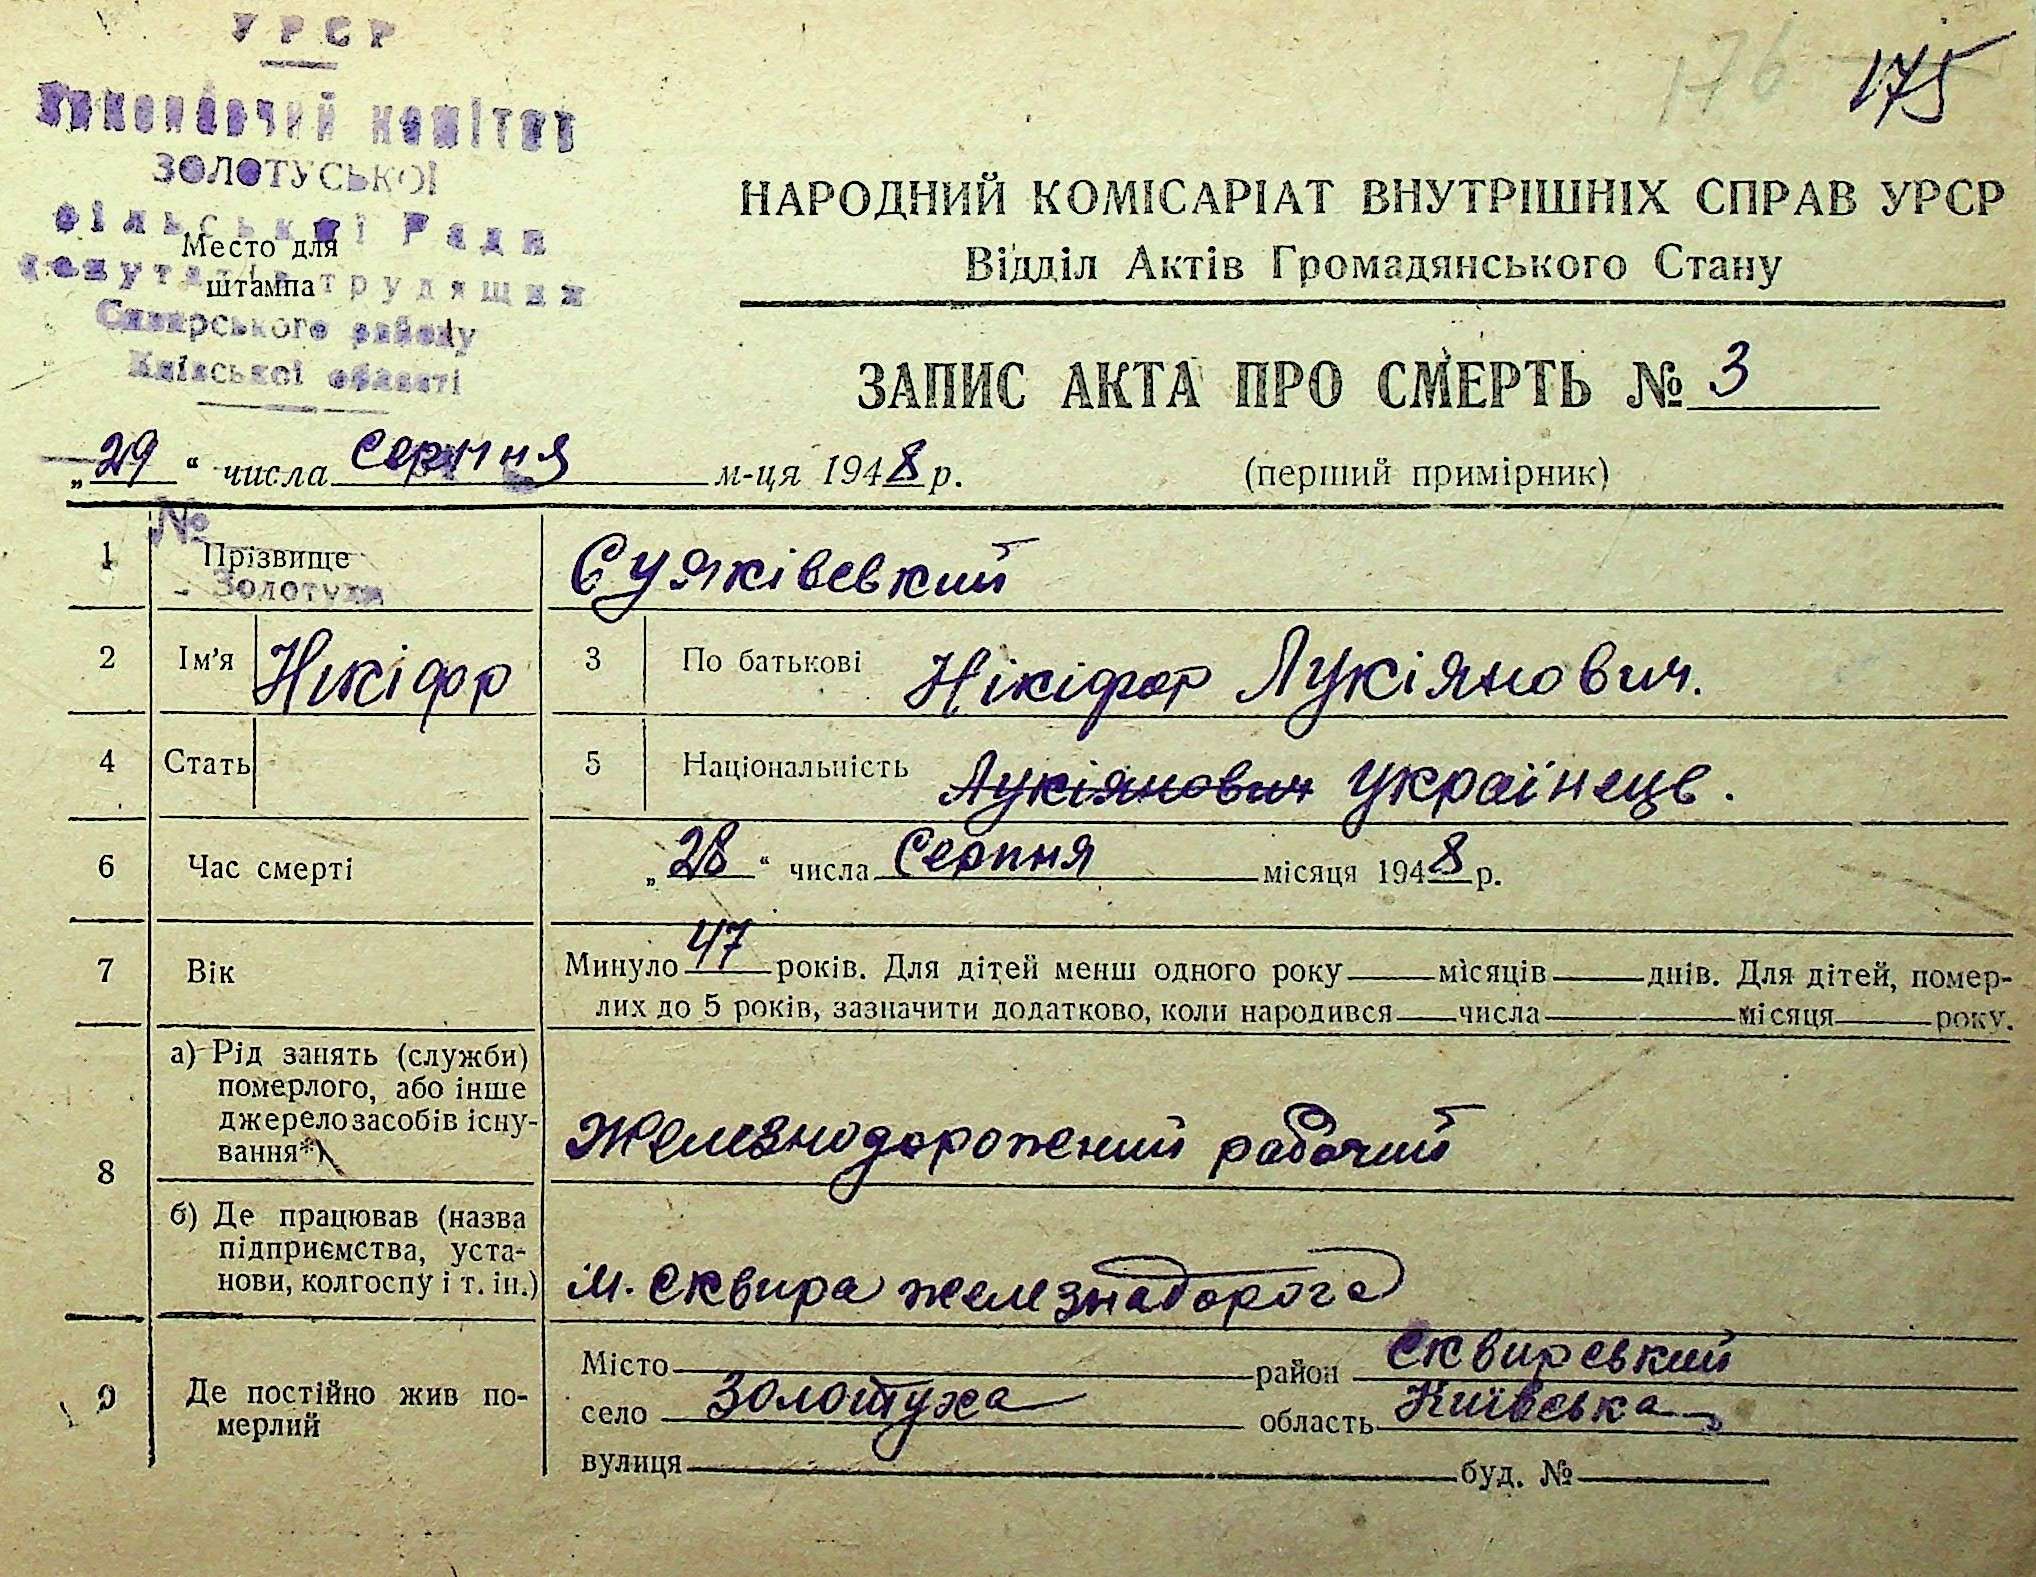 УРСР
Виконавчий комітет
ЗОЛОТУСЬКОЇ
сільської Ради
депутатів трудящих
Сквирського району
Київської області
Место для
штампа
176
175
НАРОДНИЙ КОМІСАРІАТ ВНУТРІШНІХ СПРАВ УРСР
Відділ Актів Громадянського Стану
ЗАПИС АКТА ПРО СМЕРТЬ № 3
„29“ числа Серпня м-ця 1948 р.
(перший примірник)
№
1 Прізвище Суяківський
Золотуха
2 Ім'я Нікіфор 3 По батькові Нікіфор Лукіянович.
4 Стать 5 Національність Лукіянович Українець.
6 Час смерті „28“ числа Серпня місяця 1948 р.
7 Вік Минуло 47 років. Для дітей менш одного року місяців днів. Для дітей, помер-
лих до 5 років, зазначити додатково, коли народився числа місяця року.
8 а) Рід занять (служби)
померлого, або інше
джерело засобів існу-
вання*)
Железнодорожний рабочий
б) Де працював (назва
підприємства, уста-
нови, колгоспу і т. ін.)
м. Сквира железнадорога
9 Де постійно жив по-
мерлий
Місто район Сквирський
село Золотуха область Київська
вулиця буд. №